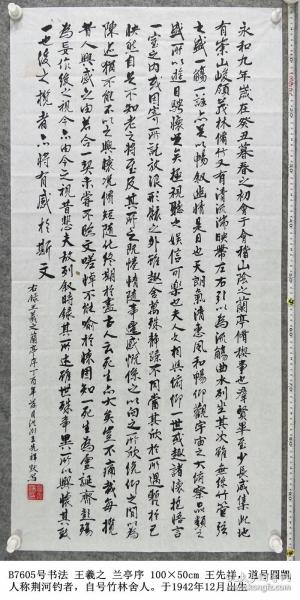 永和九年歲在癸丑暮春之初會于會稽山陰之蘭亭脩稧事也群賢畢至少長咸集此地
有崇山峻領茂林脩竹又有清流激湍映帶左右引以為流觴曲水列坐其次雖無絲竹管弦
之盛一觴一詠亦足以暢叙幽情是日也天朗氣清惠風和暢仰觀宇宙之大俯察品類之
盛所以遊目騁懷足以極視聽之娛信可樂也夫人之相與俯仰一世或取諸懷抱悟言
一室之内或因寄所託放浪形骸之外雖趣舍萬殊靜躁不同當其欣於所遇暫得於己
快然自足不知老之將至及其所之既惓情隨事遷感慨係之向之所欣俛仰之間以為
陳迹猶不能不以之興懷况脩短隨化終期於盡古人云死生亦大矣豈不痛哉每攬
昔人興感之由若合一契未嘗不臨文嗟悼不能喻之於懷固知一死生為虛誕齊彭殤
為妄作後之視今亦由今之視昔悲夫故列叙時人錄其所述雖世殊事異所以興懷其致
一也後之攬者亦將有感於斯文
右錄王羲之蘭亭序
B7605号书法 王羲之 兰亭序 100×50cm 王先祥，道号圆凯
人称荆河钓者，自号竹林舍人。于1942年12月出生